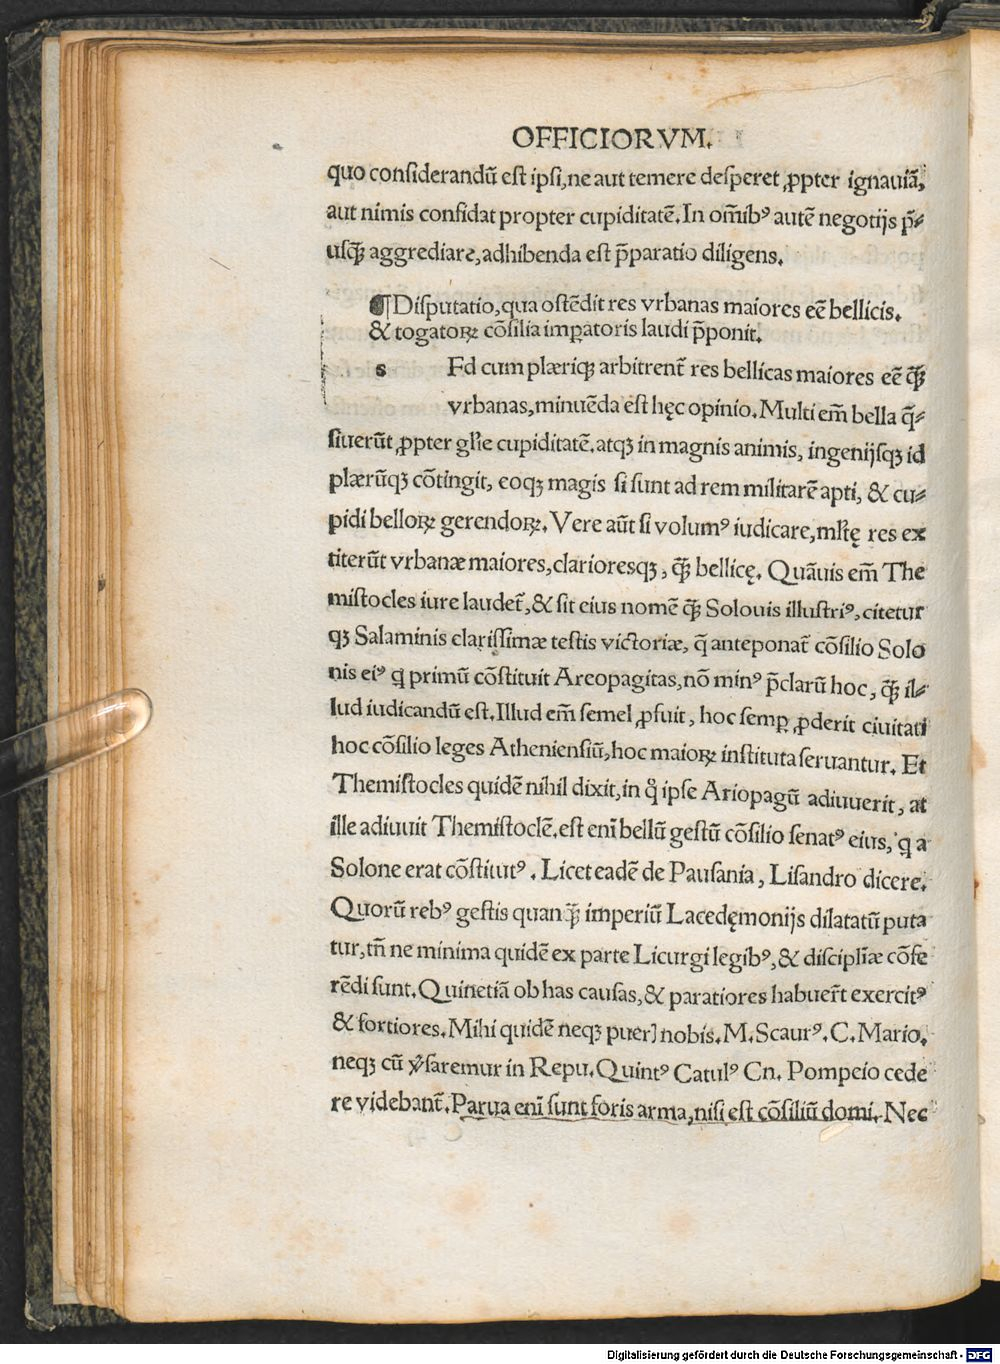 OFFICIORVM.
quo considerandū est ipsi, ne aut temere desperet ꝓpter ignauiā,
aut nimis confidat propter cupiditatē. In om̄ibꝰ autē negotijs p̄⸗
usq̄ꝫ aggrediare, adhibenda est p̄paratio diligens.
¶ Disputatio, qua ostēdit res vrbanas maiores eē bellicis.
& togatoꝝ cōsilia imꝑatoris laudi p̄ponit.
s Fd cum plæriqꝫ arbitrent̄ res bellicas maiores eē q̄ꝫ
vrbanas, minuēda est hęc opinio. Multi em̄ bella q̄⸗
siuerūt ꝓpter gl̄ie cupiditatē. atqꝫ in magnis animis, ingenijsqꝫ id
plærūqꝫ cōtingit, eoqꝫ magis si sunt ad rem militarē apti, & cu⸗
pidi belloꝝ gerendoꝝ. Vere aūt si volumꝰ iudicare, ml̄tę res ex
titerūt vrbanæ maiores, clarioresqꝫ, q̄ꝫ bellicę. Quāuis em̄ The
mistocles iure laudet̄, & sit eius nomē q̄ꝫ Solouis illustriꝰ, citetur
qꝫ Salaminis clarissimæ testis victoriæ, q̄ anteponat̄ cōsilio Solo
nis eiꝰ ꝗ primū cōstituit Areopagitas, nō minꝰ p̄clarū hoc, q̄ꝫ il⸗
lud iudicandū est. Illud em̄ semel ꝓfuit, hoc semꝑ ꝓderit ciuitati
hoc cōsilio leges Atheniensiū, hoc maioꝝ instituta seruantur. Et
Themistocles quidē nihil dixit, in q̊ ipse Ariopagū adiuuerit, at
ille adiuuit Themistoclē. est enī bellū gestū cōsilio senatꝰ eius, ꝗ a
Solone erat cōstitutꝰ. Licet eadē de Pausania, Lisandro dicere.
Quorū rebꝰ gestis quanq̄ꝫ imperiū Lacedęmonijs dilatatū puta
tur, tn̄ ne minima quidē ex parte Licurgi legibꝰ, & discipl̄iæ cōfe
rēdi sunt. Quinetiā ob has causas, & paratiores habuer̄t exercitꝰ
& fortiores. Mihi quidē neqꝫ pueɼ] nobis. M. Scaurꝰ. C. Mario.
neqꝫ cū v̓saremur in Repu. Quintꝰ Catulꝰ Cn. Pompeio cede
re videbant̄. Parua enī sunt foris arma, nisi est cōsiliū domi. Nec
Digitalisierung gefördert durch die Deutsche Forschungsgemeinschaft - DFG